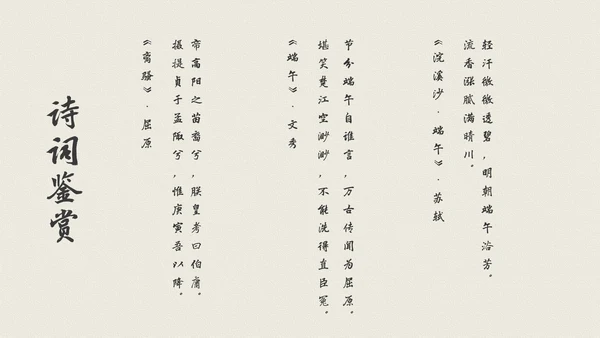 轻汗微微透碧,明朝端午浴芳。
流香涨腻满晴川。
《浣溪沙·端午》·苏轼
节分端午自谁言,万古传闻为屈原。
堪笑楚江空渺渺,不能洗得直臣冤。
《端午》·文秀
帝高阳之苗裔兮,朕皇考曰伯庸。
摄提贞于孟陬兮,惟庚寅吾以降。
《离骚》·屈原
诗词鉴赏